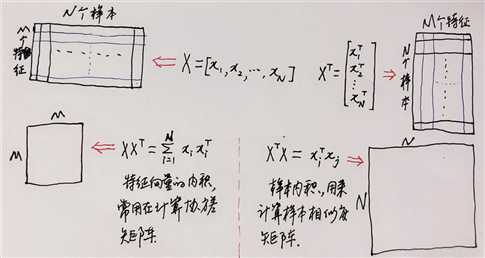 N个样本
M个特征
X = [x₁, x₂, ..., x_N]
Xᵀ = [x₁ᵀ x₂ᵀ ⋮ x_Nᵀ]
M个特征
N个样本
M
M
XXᵀ = Σ_{i=1}^{N} xᵢ xᵢᵀ
特征向量的内积,
常用在计算协方差
矩阵.
XᵀX = xᵢᵀxⱼ
样本内积, 用来
计算样本相似度
矩阵.
N
N